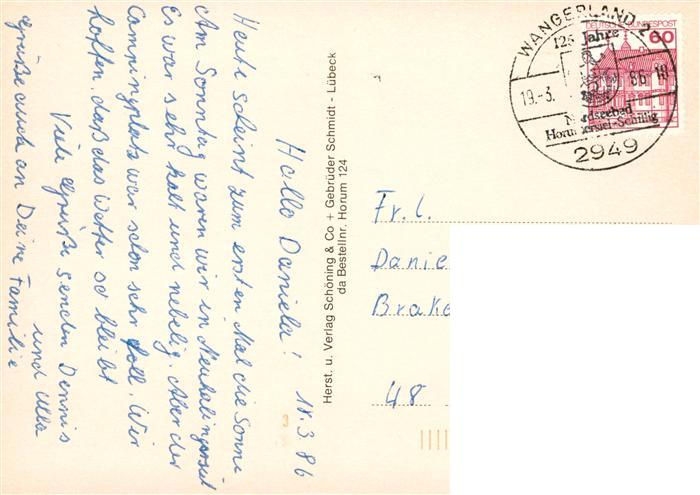 Hallo Daniela! 18.3.86
Heute scheint zum ersten Mal die Sonne
Am Sonntag waren wir in Neuharlingersiel
Es war sehr kalt und nebelig. Aber der
Campingplatz war schon sehr voll. Wir
hoffen, daß das Wetter so bleibt
Viele Grüße senden Dennis
und Ulla
Grüße auch an Deine Familie
Herst. u. Verlag Schöning & Co + Gebrüder Schmidt - Lübeck
da Bestellnr. Horum 124
WANGERLAND 2
125 Jahre
19.-3. 86.-18
Nordseebad
Horumersiel-Schillig
2949
DEUTSCHE BUNDESPOST
60
Frl.
Danie
Brake
48